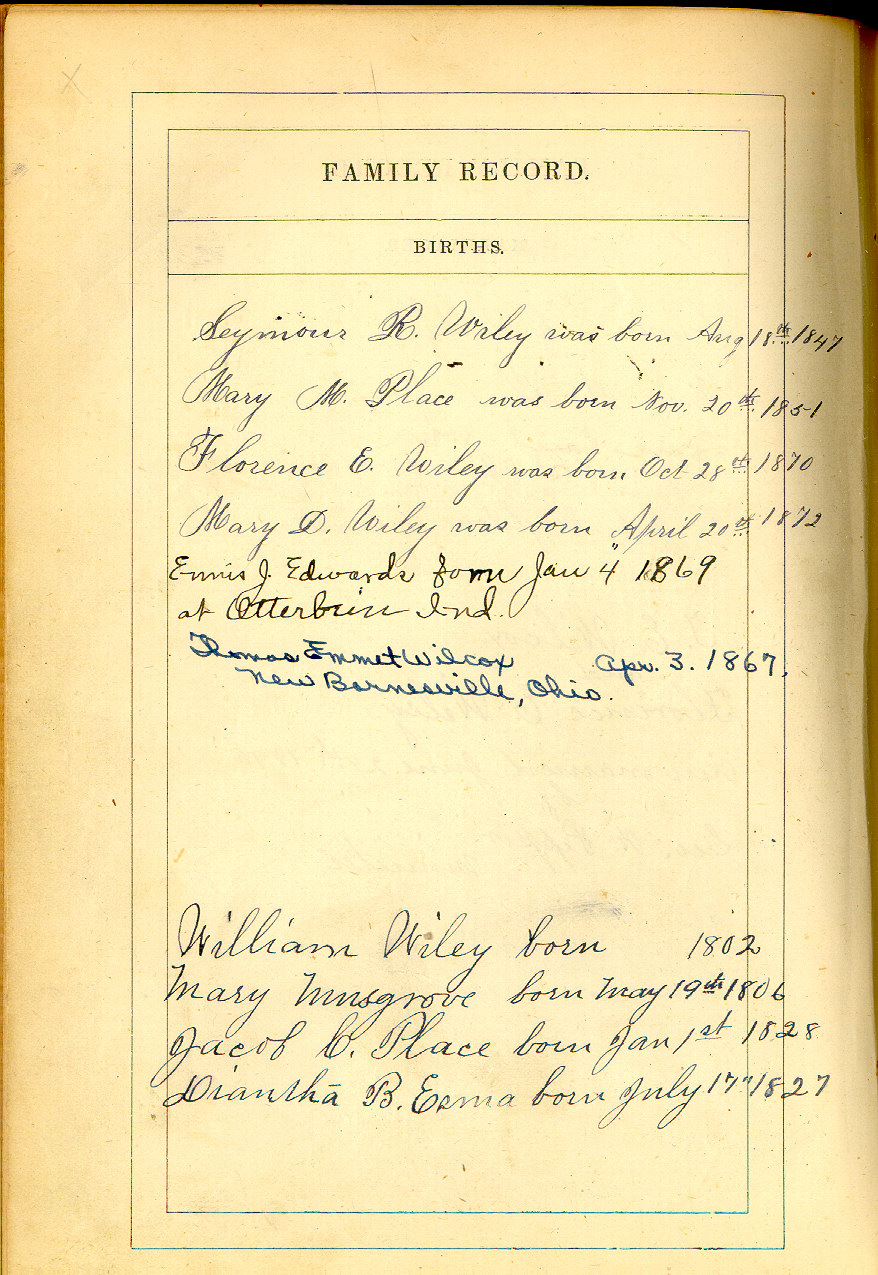 FAMILY RECORD.
BIRTHS.
Seymour R. Wiley was born Aug 18th 1847
Mary M. Place was born Nov. 20th 1851
Florence E. Wiley was born Oct 28th 1870
Mary D. Wiley was born April 20th 1872
Ennis J. Edwards born Jan 4 1869
at Otterbein Ind.
Thomas Emmet Wilcox Apr. 3. 1867.
New Barnesville, Ohio.
William Wiley born 1802
Mary Musgrove born May 19th 1806
Jacob C. Place born Jan 1st 1828
Diantha B. born July 17" 1827